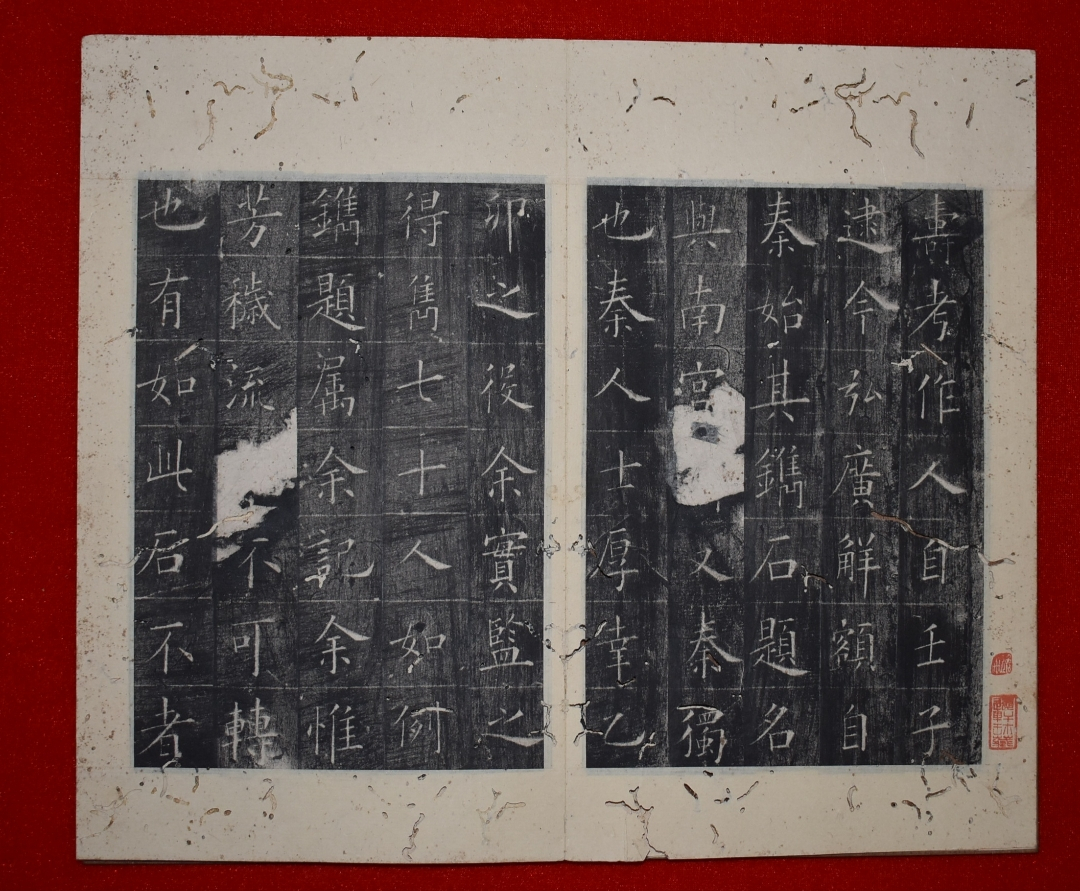 壽考作人自壬子
逮今弘廣解額自
秦始其鐫石題名
與南宮又秦獨
也秦人士厚幸乙
卯之役余實監之
得雋七十人如例
鐫題属余記余惟
芳穢流不可轉
也有如此石不者